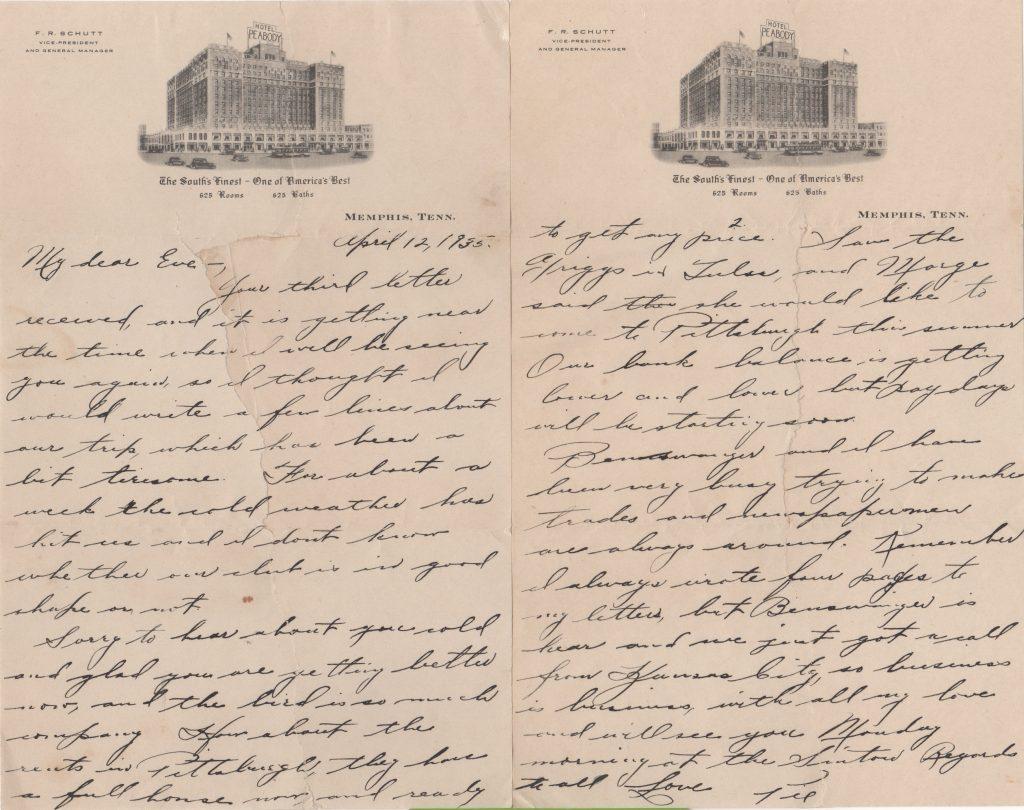 F. R. SCHUTT
VICE-PRESIDENT
AND GENERAL MANAGER
HOTEL
PEABODY
The South's Finest – One of America's Best
625 Rooms 625 Baths
MEMPHIS, TENN.
April 12, 1935.
My dear Eve –,
Your third letter
received, and it is getting near
the time when I will be seeing
you again, so I thought I
would write a few lines about
our trip, which has been a
bit tiresome. For about a
week the cold weather has
hit us and I dont know
whether our club is in good
shape or not
Sorry to hear about you cold
and glad you are getting better
now, and the bird is so much
company How about the
rents in Pittsburgh, they have
a full house now and ready
F. R. SCHUTT
VICE-PRESIDENT
AND GENERAL MANAGER
HOTEL
PEABODY
The South's Finest – One of America's Best
625 Rooms 625 Baths
MEMPHIS, TENN.
2
to get any price. Saw the
Griggs in Tulsa, and Marge
said she would like to
come to Pittsburgh this summer
Our bank balance is getting
lower and lower but pay days
will be starting soon
Benswanger and I have
been very busy trying to make
trades and newspapermen
are always around. Remember
I always wrote four pages to
my letters, but Benswanger is
hear and we just got a call
from Kansas City, so business
is business, with all my love
and will see you Monday
morning at the Regards
to all Love